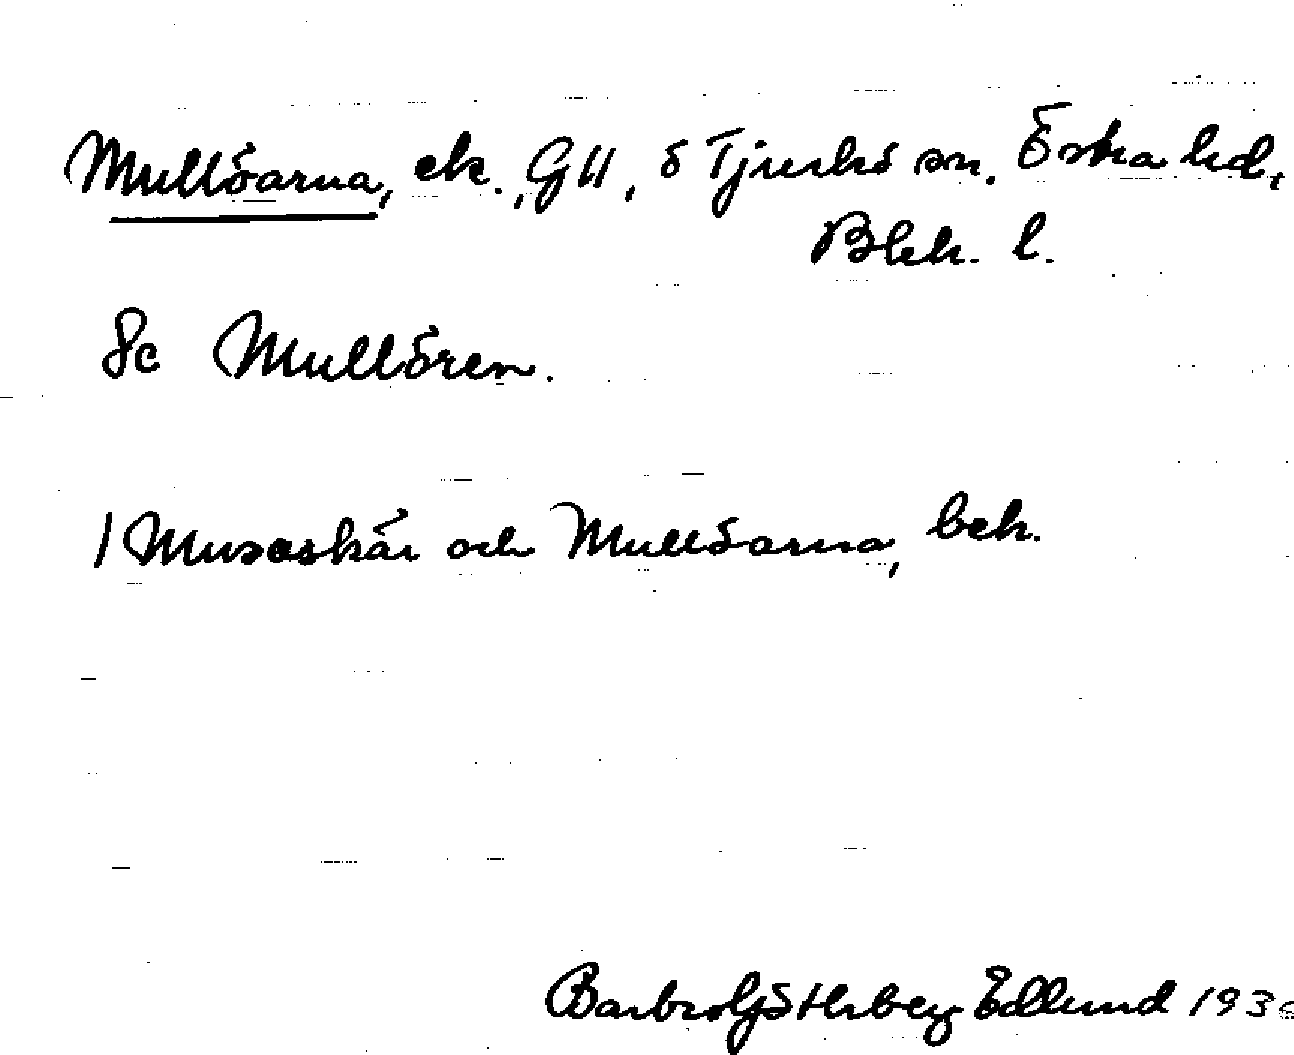 Mullöarna, ek., GH, ö Tjurkö sn. Östra hd,
Blek. l.
Se Mullören.
1 Musaskär och Mullöarna, bek.
Barbro Götherberg Edlund 193